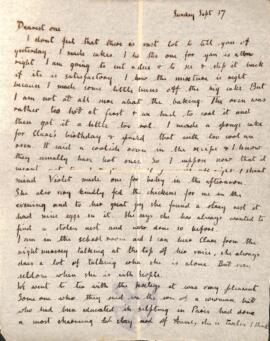 Sunday Sept 17
Dearest one
I don't feel that there is a vast lot to tell you of
yesterday. I made cakes. I do the one for you is allow
right I am going to cut a slice & to see & ship it back
if it is satisfactory. I know the mixture is right
because I made some little buns off the big cake. But I
am not at all sure about the baking. The oven was
rather too hot at first & we had to cool it and
then got it a little too cool. I made a sponge cake
for Clare's birthday & spoiled that with too cool an
oven. It said a coolish oven in the recipe & I know
they usually have hot ones. So I suppose now that it
mind. Violet made one for baby in the afternoon
She also very kindly fed the chickens for me in the
evening and to her great joy she found a stray nest it
had nine eggs in it. She says she has always wanted to
find a stolen nest and never done so before.
I am in the school room and I can hear Clare from the
night nursery talking at the top of her voice, she always
does a lot of talking when she is alone. But even
seldom when she is with people.
We went to tea with the it was very pleasant
Some one who they said was the son of a
who had been educated in in Paris had done
a most charming clay of Anne, she is twelve I think